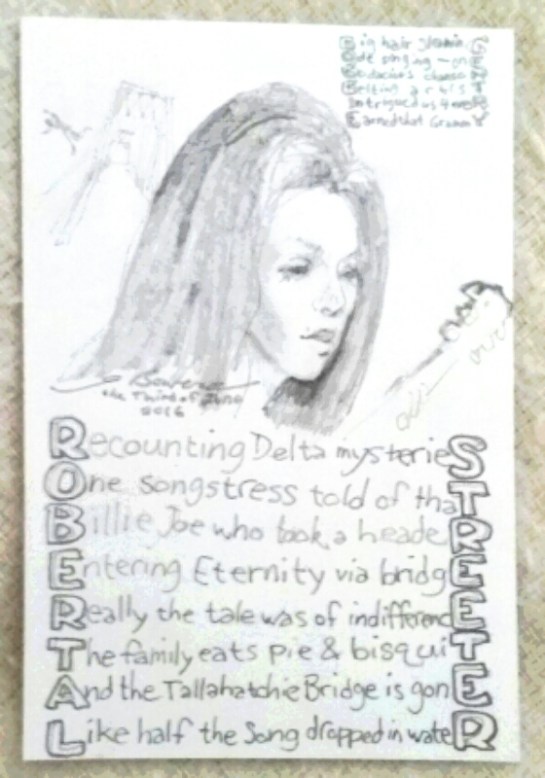 Big hair gleaminG
Ode singing — onE
Bodacious chansoN
Belting artisT
Intrigued us 4 eveR
Earned that GrammY
the Third of June
2016
Recounting Delta mysterieS
One songstress told of thaT
Billie Joe who took a headeR
Entering Eternity via bridgE
Really the tale was of indifferencE
The family eats pie & bisquiT
And the Tallahatchie Bridge is gonE
Like half the Song dropped in wateR